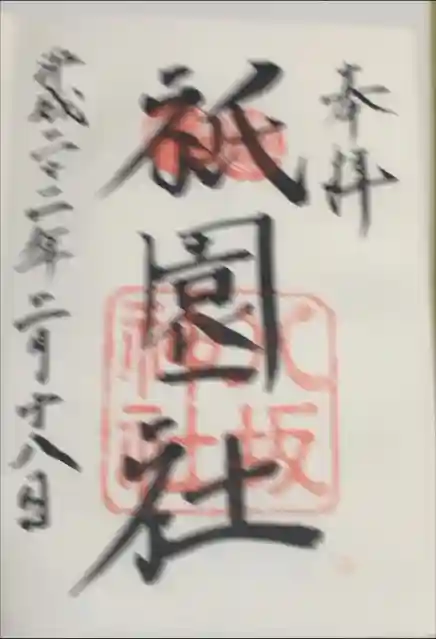 奉拝
祇園社
八坂
神社
平成二十二年二月十八日